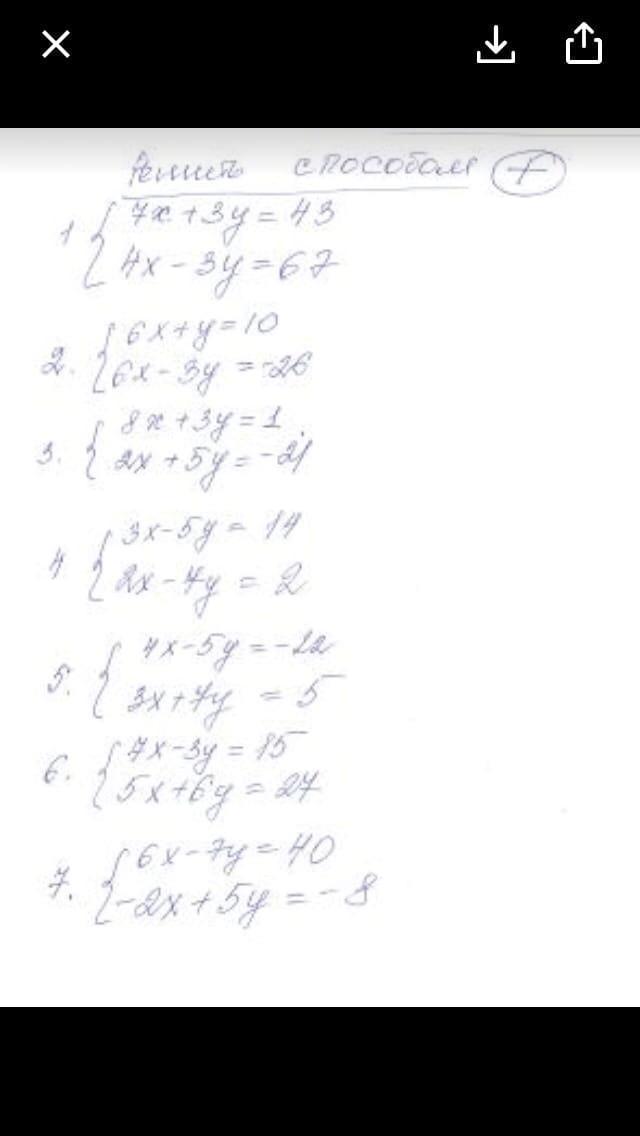 Решить способом +
1 { 7x + 3y = 43
4x - 3y = 67
2. { 6x + y = 10
6x - 3y = -26
3. { 8x + 3y = 1
2x + 5y = -21
4 { 3x - 5y = 14
2x - 7y = 2
5. { 4x - 5y = -22
3x + 7y = 5
6. { 7x - 3y = 15
5x + 6y = 27
7. { 6x - 7y = 40
-2x + 5y = -8